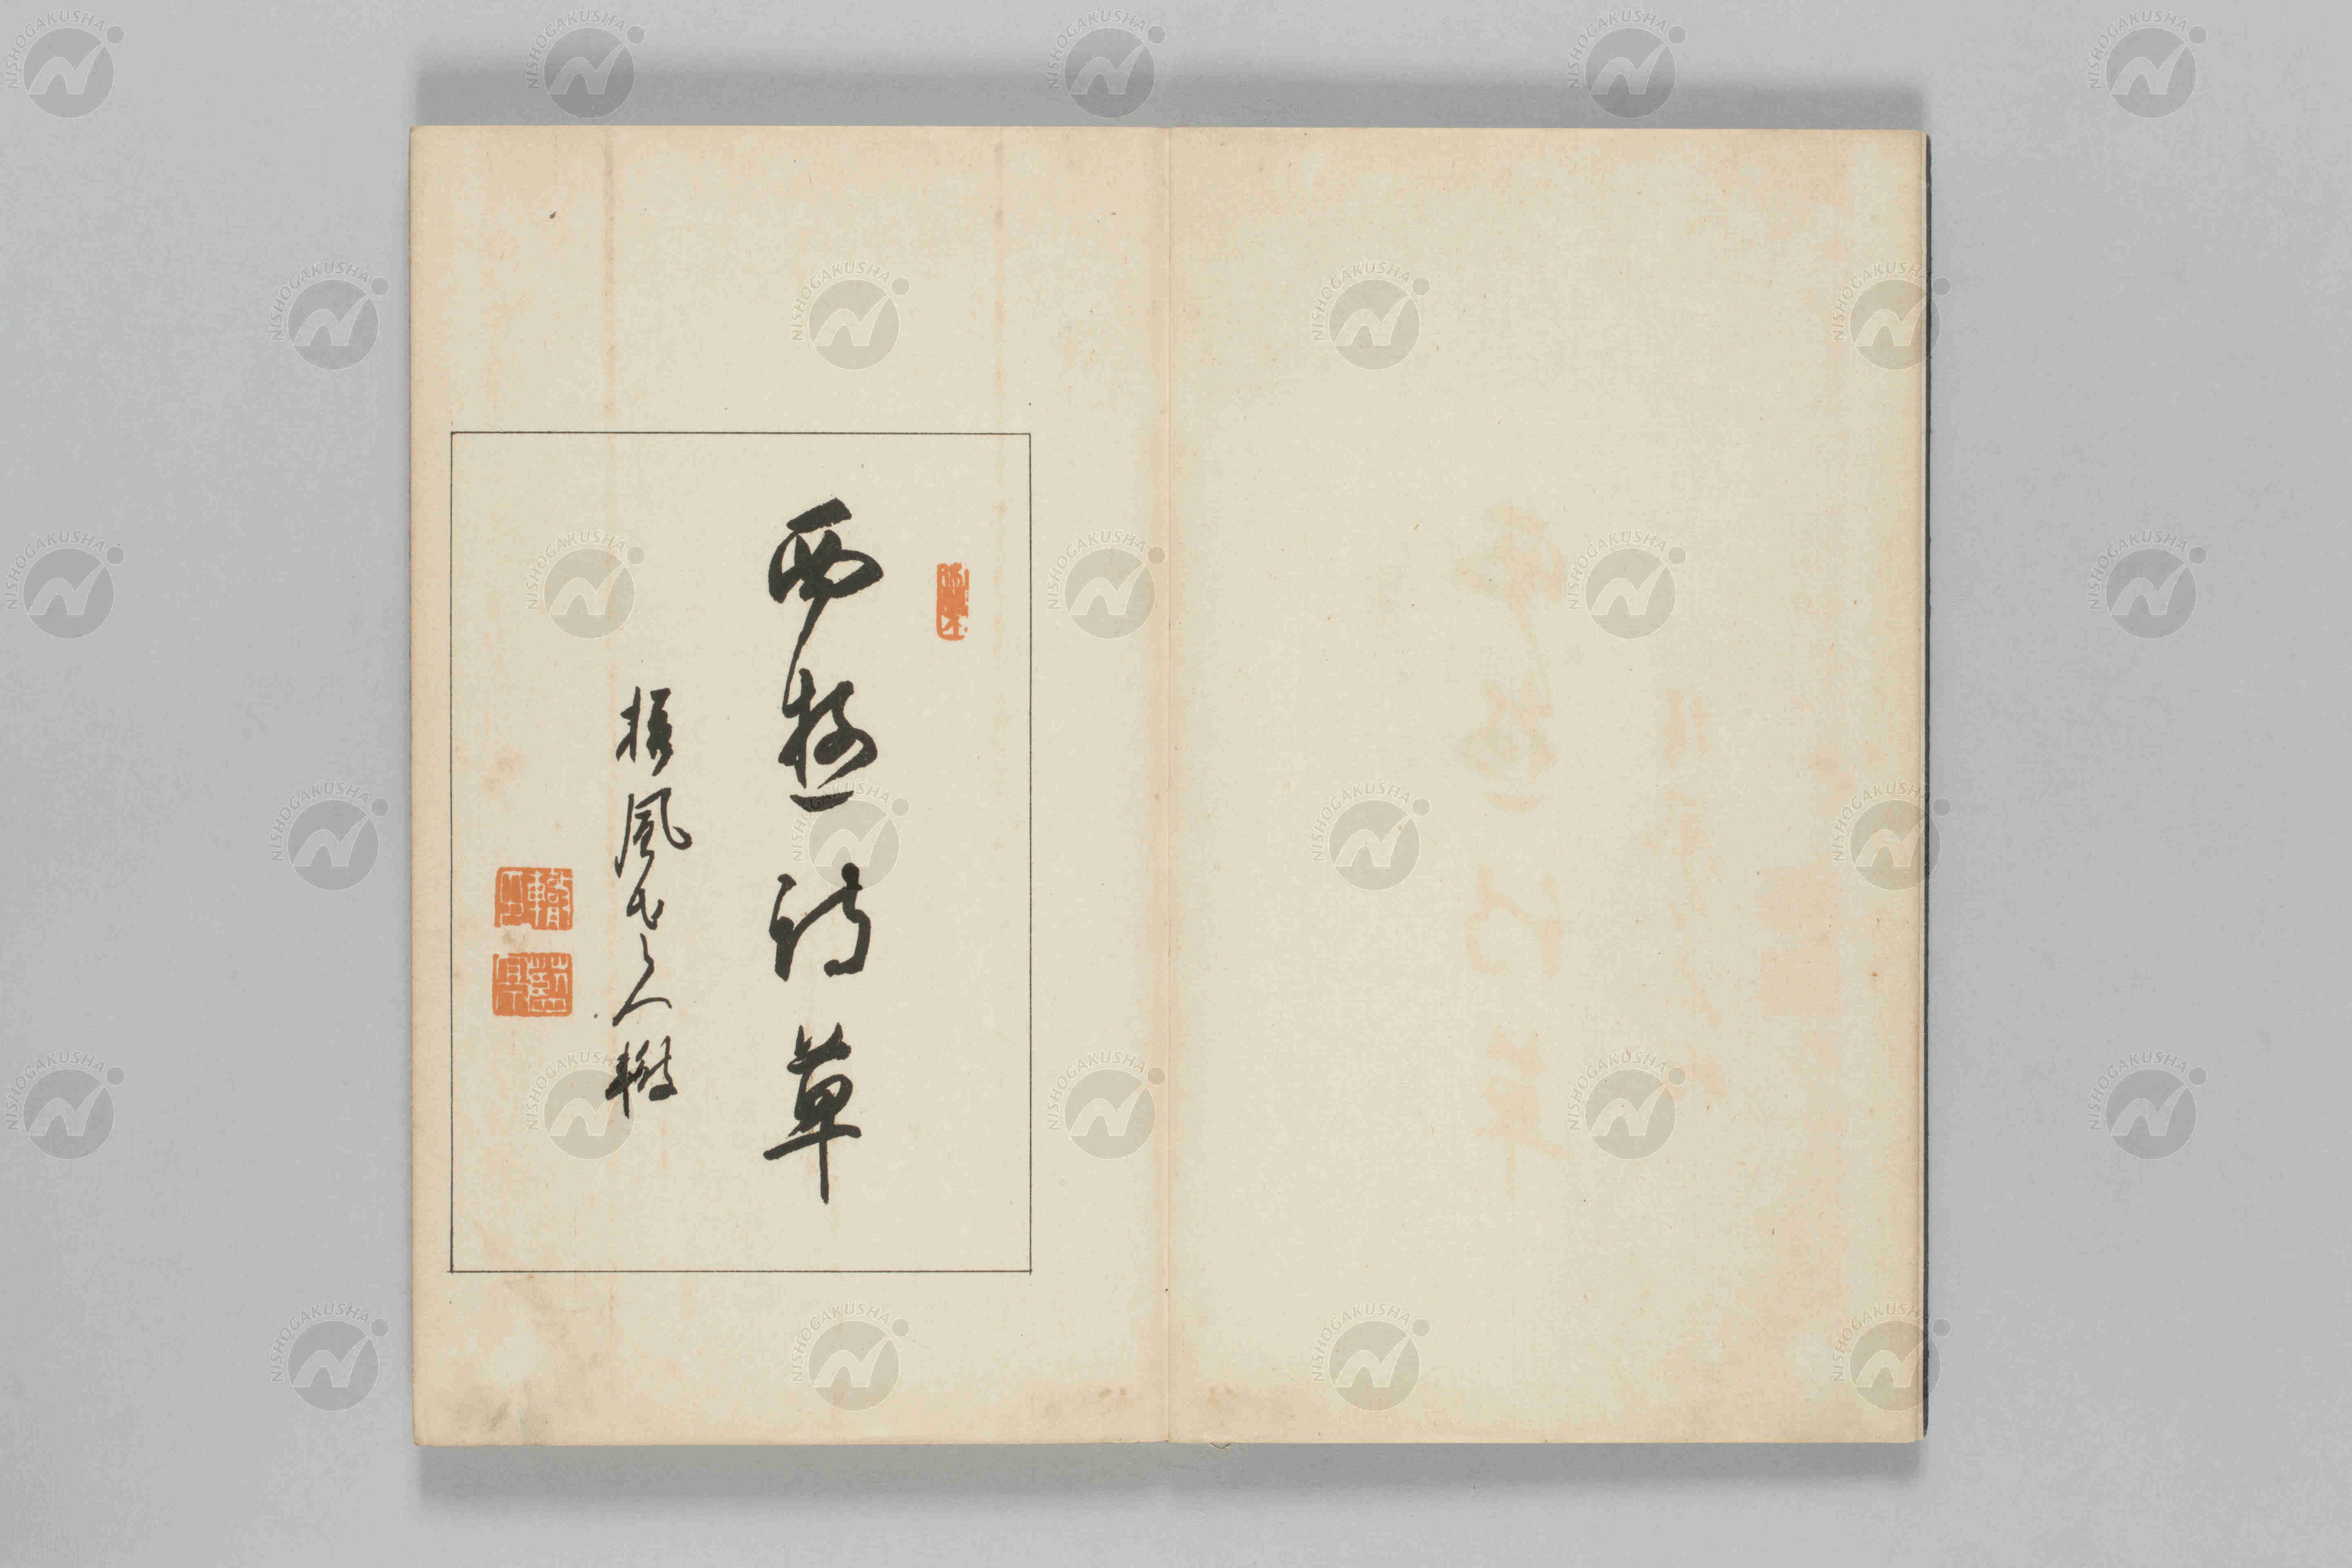 西遊詩草
振風老人轍
NISHOGAKUSHA